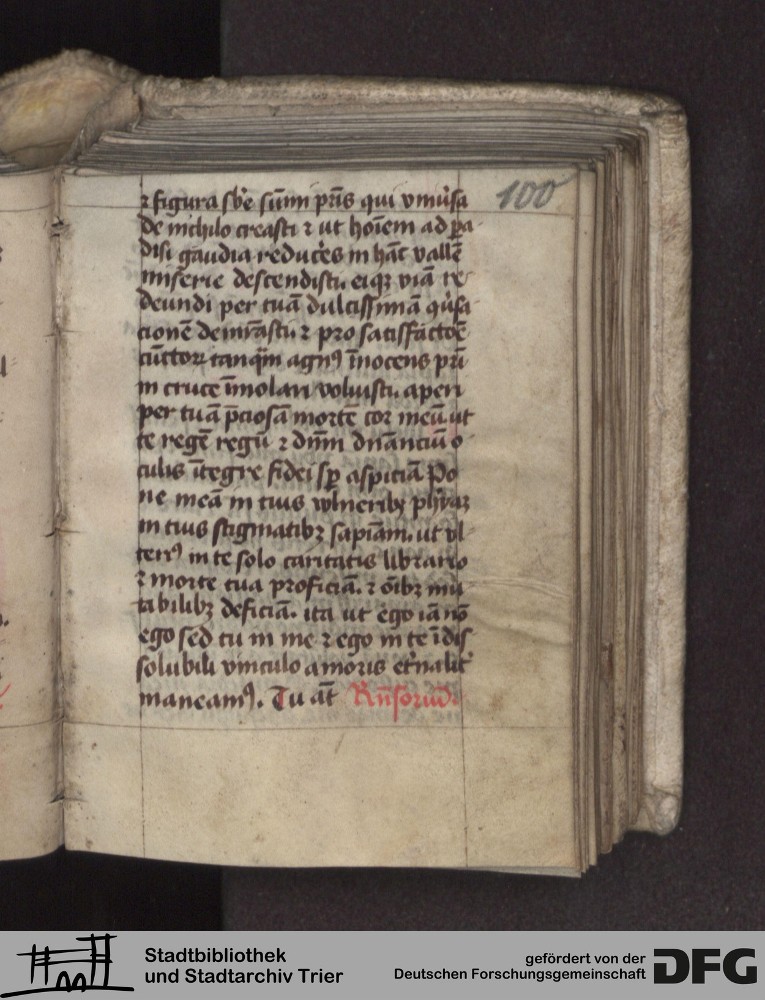 ⁊ figura sb̄e sūmi pr̄is qui vniūsa
de nichilo creasti ⁊ ut hoīem ad ꝑa
disi gaudia reduc̄es in hāc vallē
miserie descendisti. eiqꝫ viā re
deundi per tuā dulcissimā
cionē demr̄asti ⁊ pro satisfactōe
cūctoꝝ tanq̄m agnꝰ īnocens pr̄i
in cruce īmolari voluisti. aperi
per tuā p̄ciosā mortē cor meū. ut
te regē regū ⁊ dn̄m dn̄anciū o
culis ītegre fidei sꝑ aspiciā Po
ne meā in tuis vulneribꝫ
in tuis stigmatibꝫ sapīam. ut vl
teriꝰ in te solo caritatis librario
⁊ morte tua proficiā. ⁊ oībꝫ mu
tabilibꝫ deficiā. ita ut ego iā nō
ego sed tu in me ⁊ ego in te īdis
solubili vinculo amoris et̄nalit̄
maneamꝰ. Tu aūt Rn̄soriū.
100
Stadtbibliothek
und Stadtarchiv Trier
gefördert von der
Deutschen Forschungsgemeinschaft
DFG